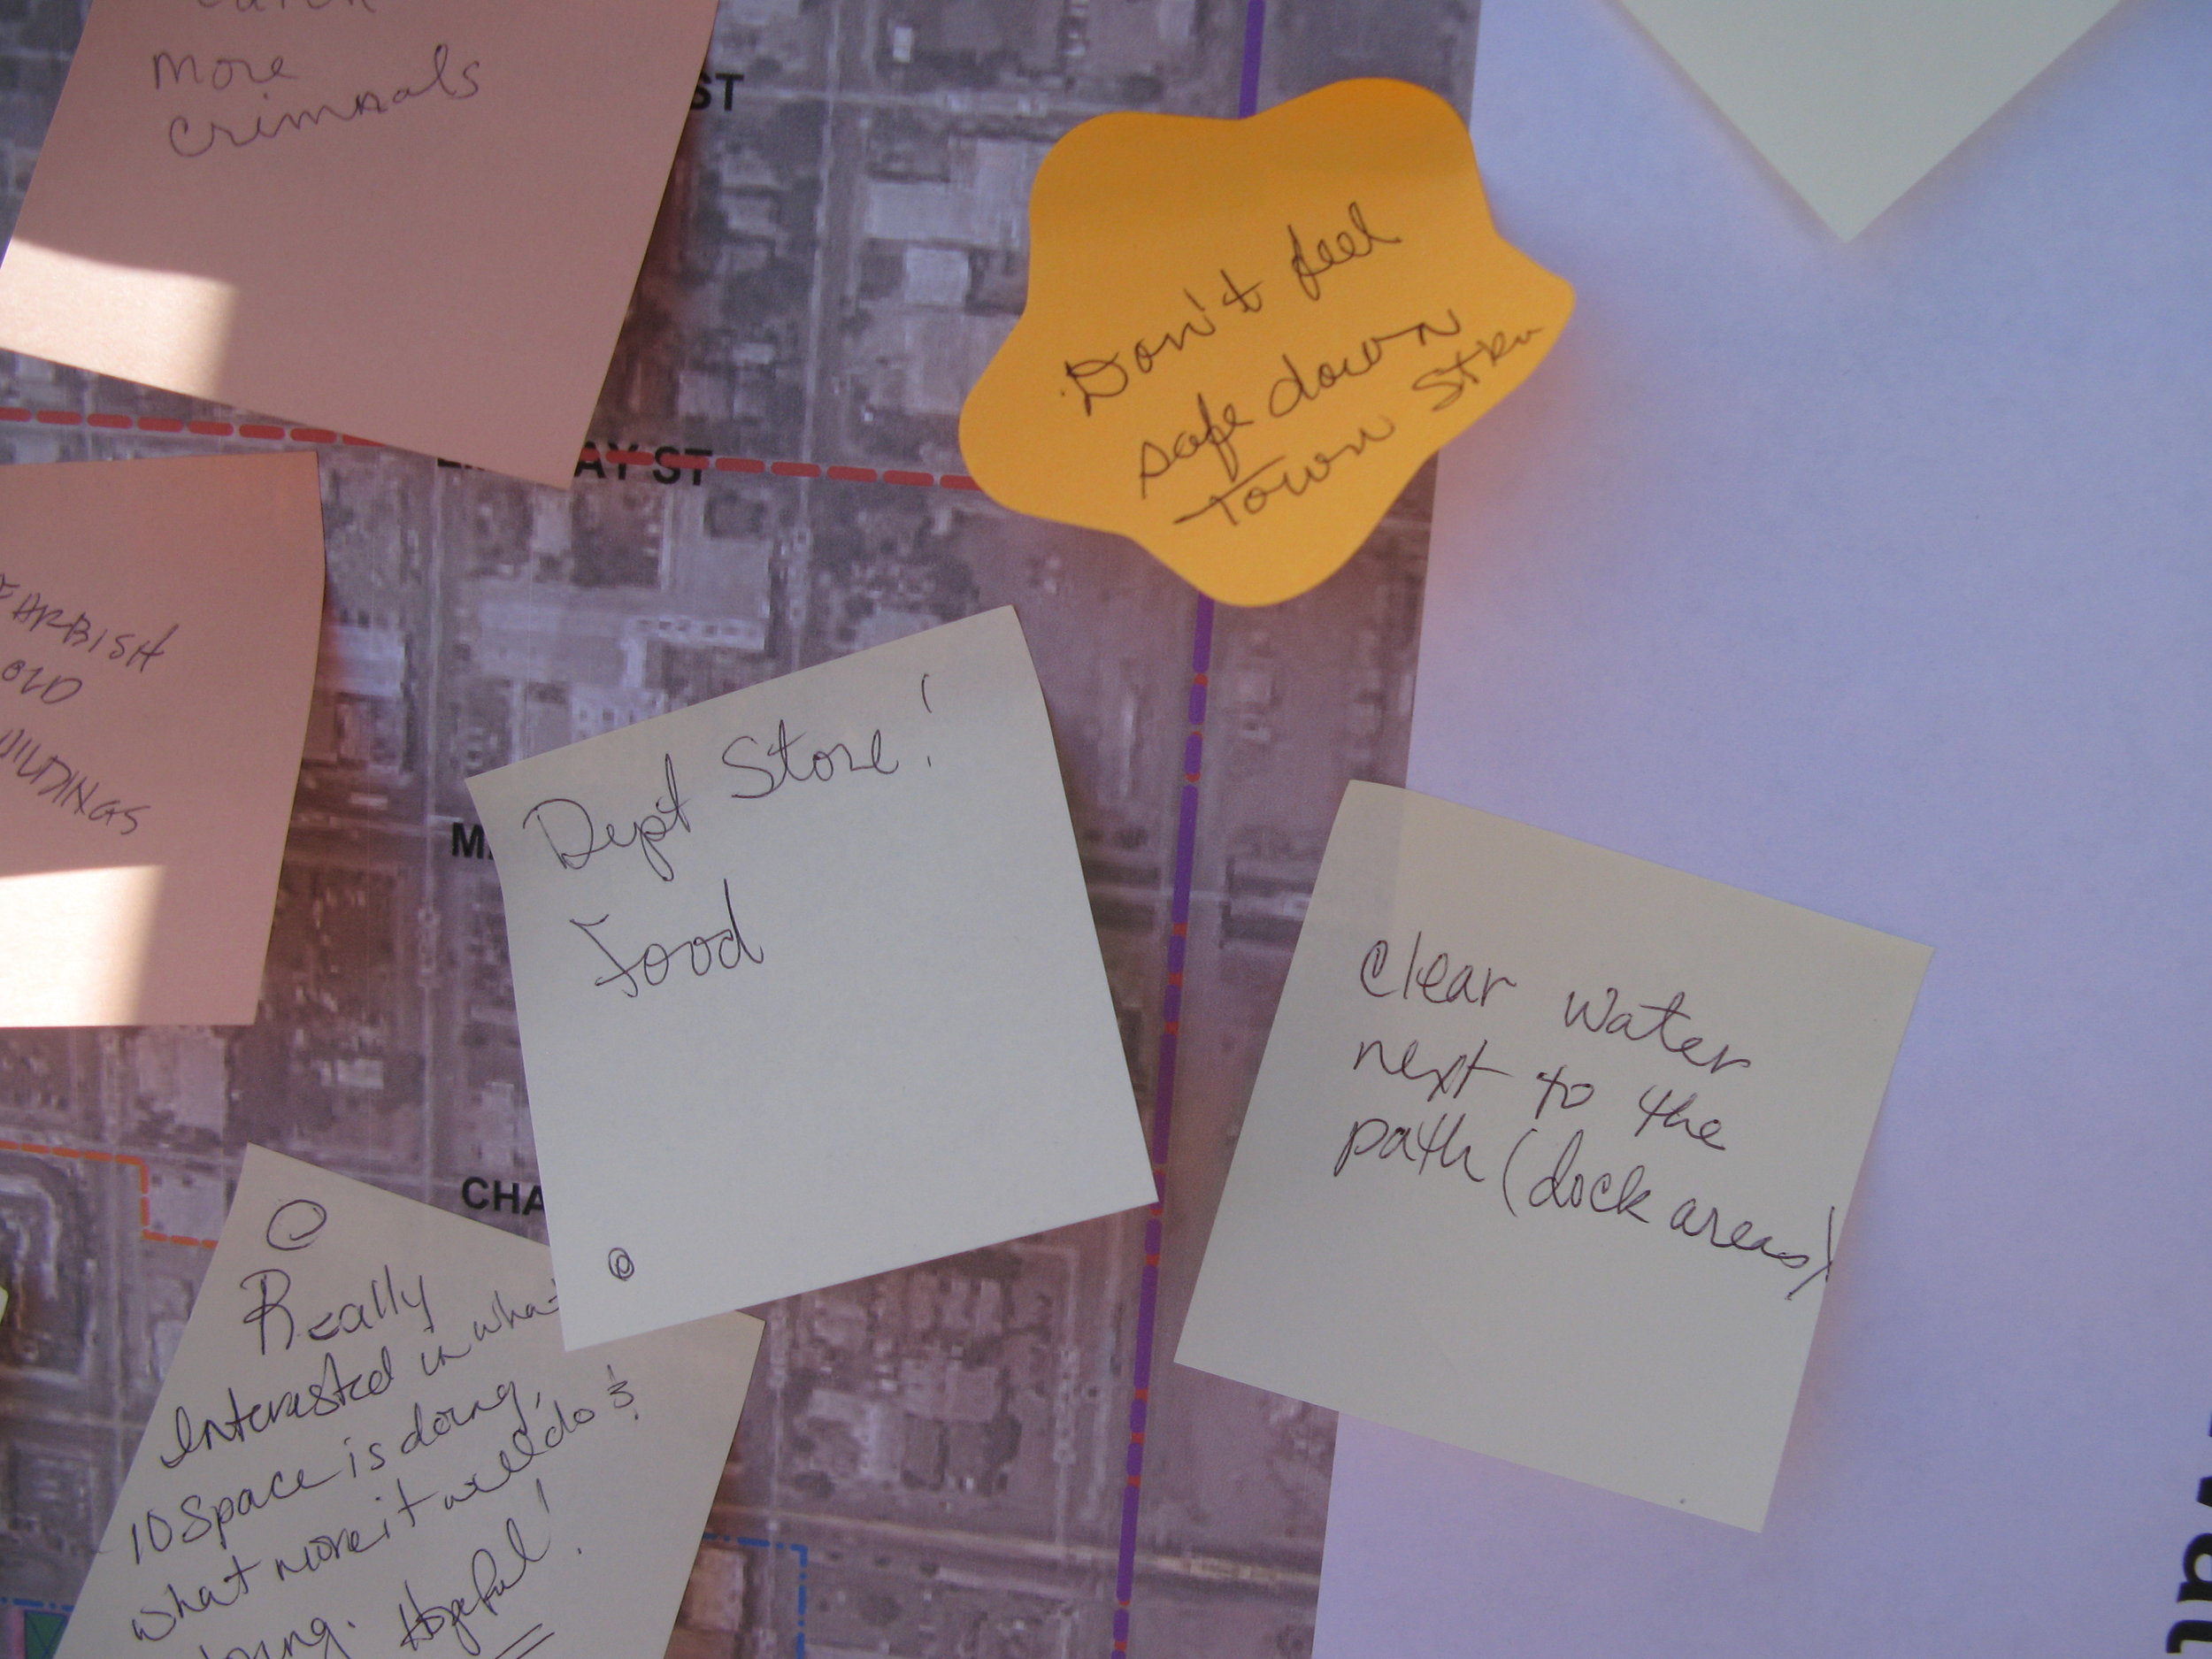 more
criminals
ST
Don't feel
safe down
town Stkn
AY ST
FARBISH
OLD
UILDINGS
Dept Store!
Food
M
clear water
next to the
path (dock areas)
CHA
@
Really
Interested in what
10 Space is doing,
what more it will do &
doing. Hopeful!